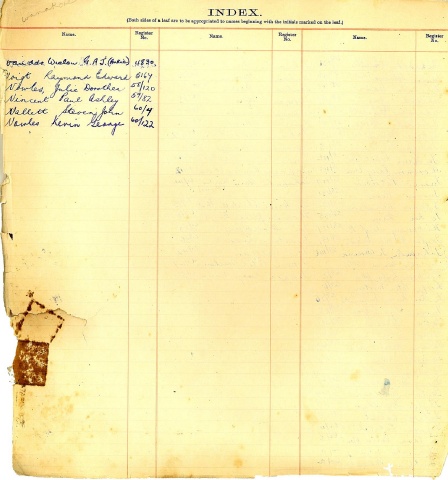 INDEX.
(Both sides of a leaf are to be appropriated to names beginning with the initials marked on the leaf.)
Name. Register No. Name. Register No. Name. Register No.
G. A. J. 4830
Voigt Raymond Edward 5164
Vowles Julie Dorothea 58/120
Vincent Paul Ashley 59/82
Vellett Steven John 60/4
Vowles Kevin George 60/122